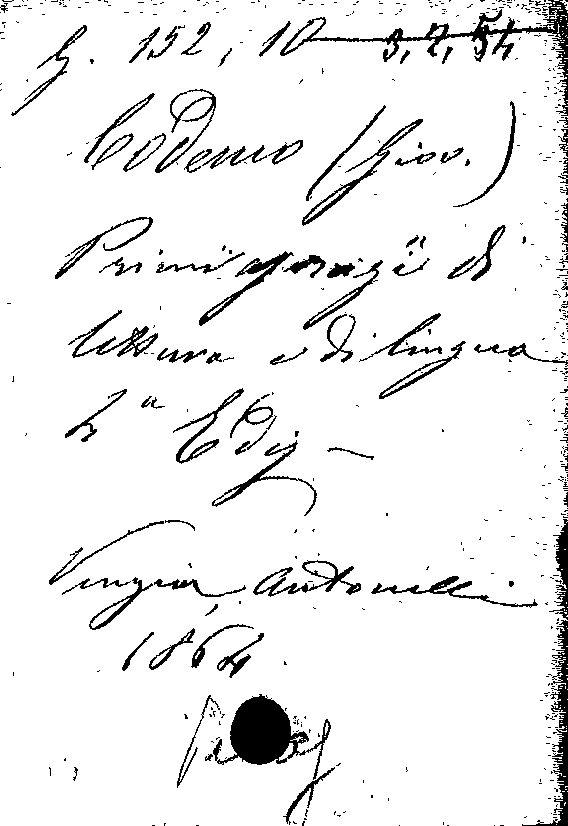 G. 152, 10 3, 2, 54
Codemo (Giov.)
Primi di
lettura e di lingua
2ª Ediz
Venezia, Antonelli
1864